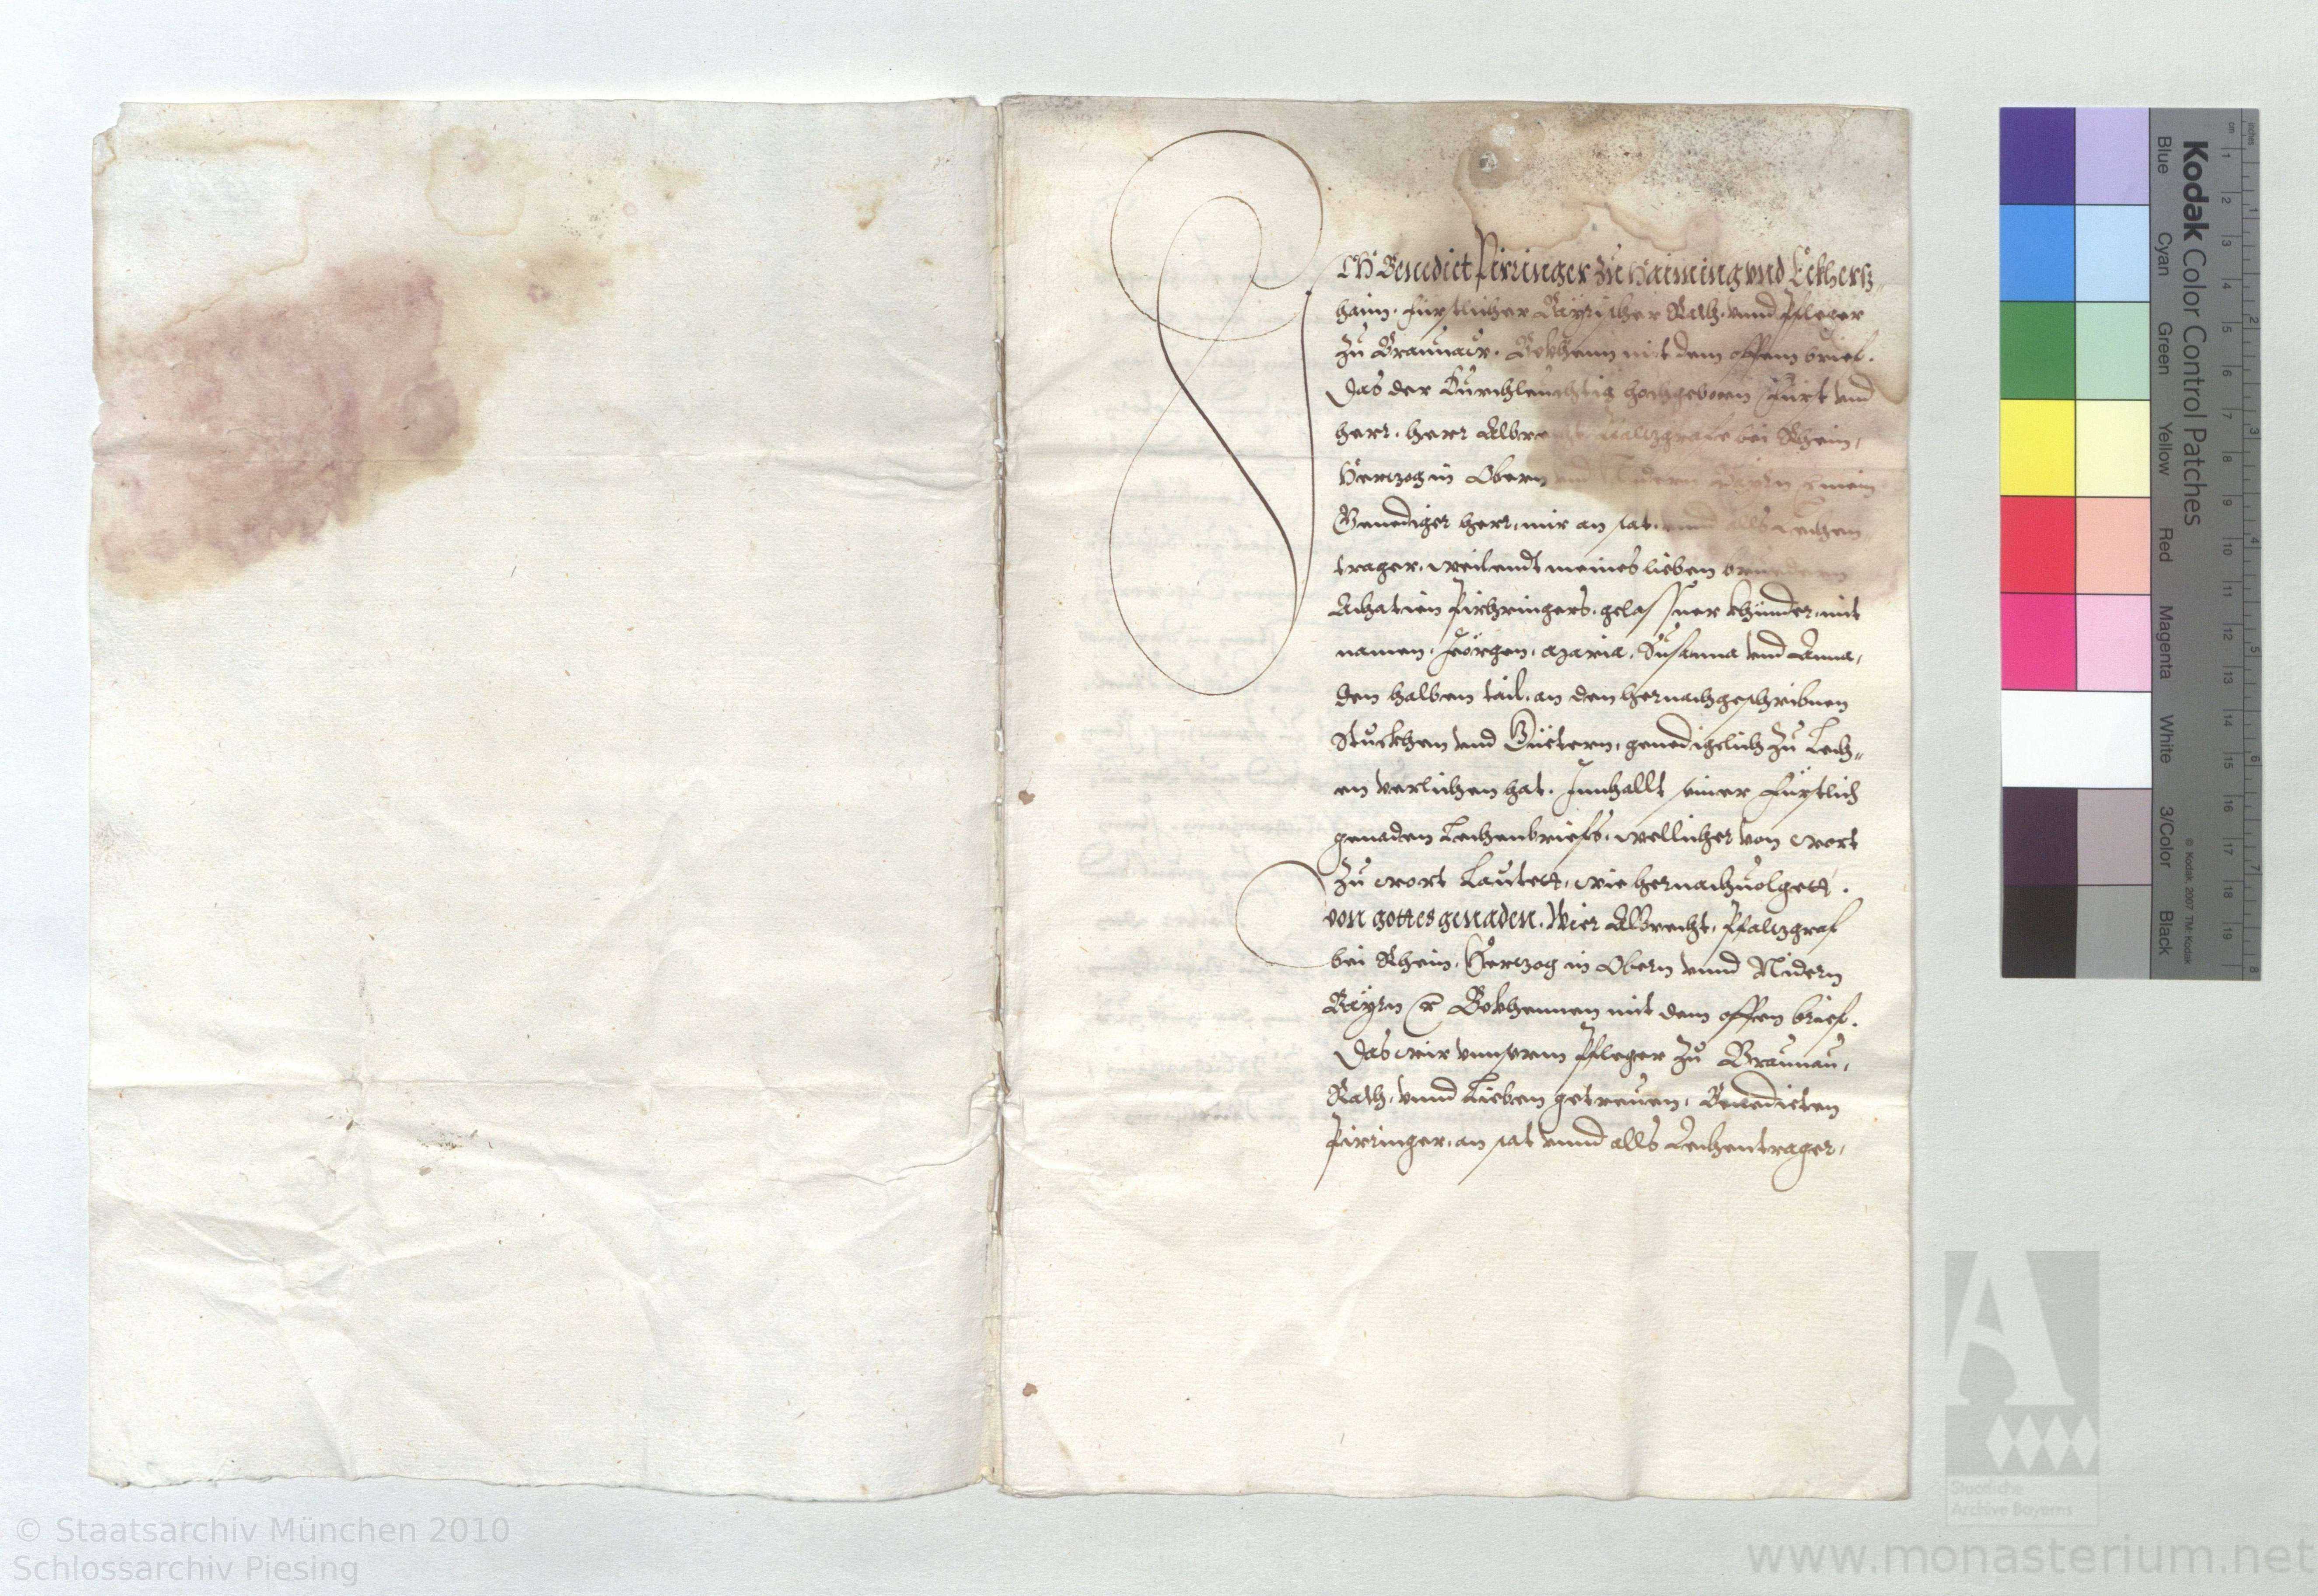 ICH Benedict Pirringer zu Haiming vnd Eckhersz-
haim. Fürstlicher Bayrischer Rath. vnnd Pfleger
zu Braunaw. Bekhenn mit dem offem brief.
Das der Durchleuchtig hochgeboren Fürst vnd
herr. herr Albrecht Pfaltzgrafe bei Rhein,
Hertzog in Obern vnd Nidern Bayrn &c mein
Genediger herr, mir an stat. vnnd alls Lechen
trager, weilendt meines lieben bruedern
Achatien Pirchringers. gelassner khinder, mit
namen. Jeörgen. Maria. Susanna vnd Anna,
den halben tail. an den hernachgeschribnen
Stuckhen vnd Güetern, genedigelich zu Lech-
en verlichen hat. Innhallt seiner Fürstlich
genaden Lechenbriefs. wellicher von wort
zu wort Lautett, wie hernachuolgett.
von gottes genaden. Wier Albrecht. Pfaltzgraf
bei Rhein. Hertzog in Obern vnnd Nidern
Bayrn &c Bekhennen mit dem offen brief.
Das wir vnnserm Pfleger zu Braunau,
Rath. vnnd Lieben getreuen, Benedicten
Pirringer, an stat vnnd alls Lechentrager,
Kodak Color Control Patches
Blue Cyan Green Yellow Red Magenta White 3/Color Black
© Kodak, 2007 TM: Kodak
cm 1 2 3 4 5 6 7 8 9 10 11 12 13 14 15 16 17 18 19
inches 1 2 3 4 5 6 7 8
Staatliche
Archive Bayerns
© Staatsarchiv München 2010
Schlossarchiv Piesing
www.monasterium.net